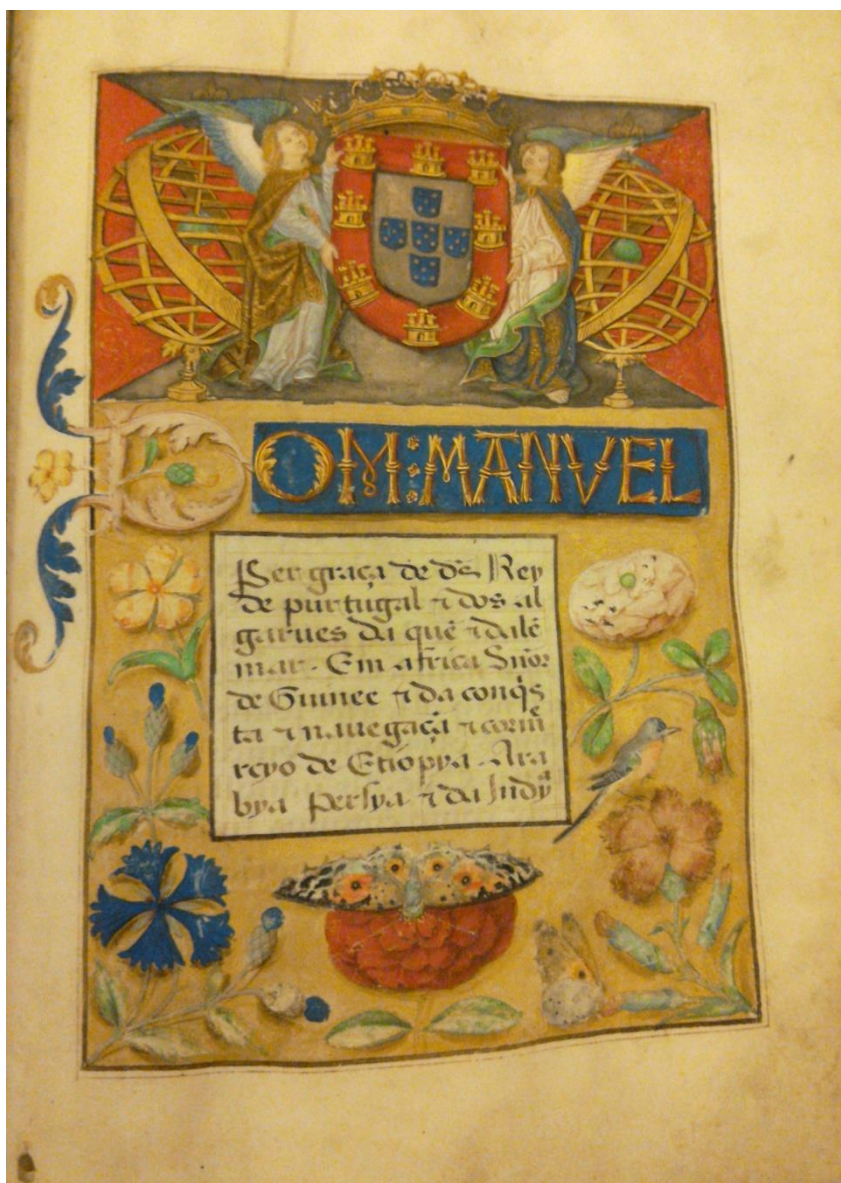 DOM : MANVEL
Per graça de ds̃ Rey
de purtugal ⁊ dos al
garues da quẽ ⁊ dalẽ
mar. Em africa Sñor
de Guinee ⁊ da conq̃s
ta ⁊ nauegaçã ⁊ com̃
rçyo de Etiopya. Ara
bya Persya ⁊ da Jndyᵃ